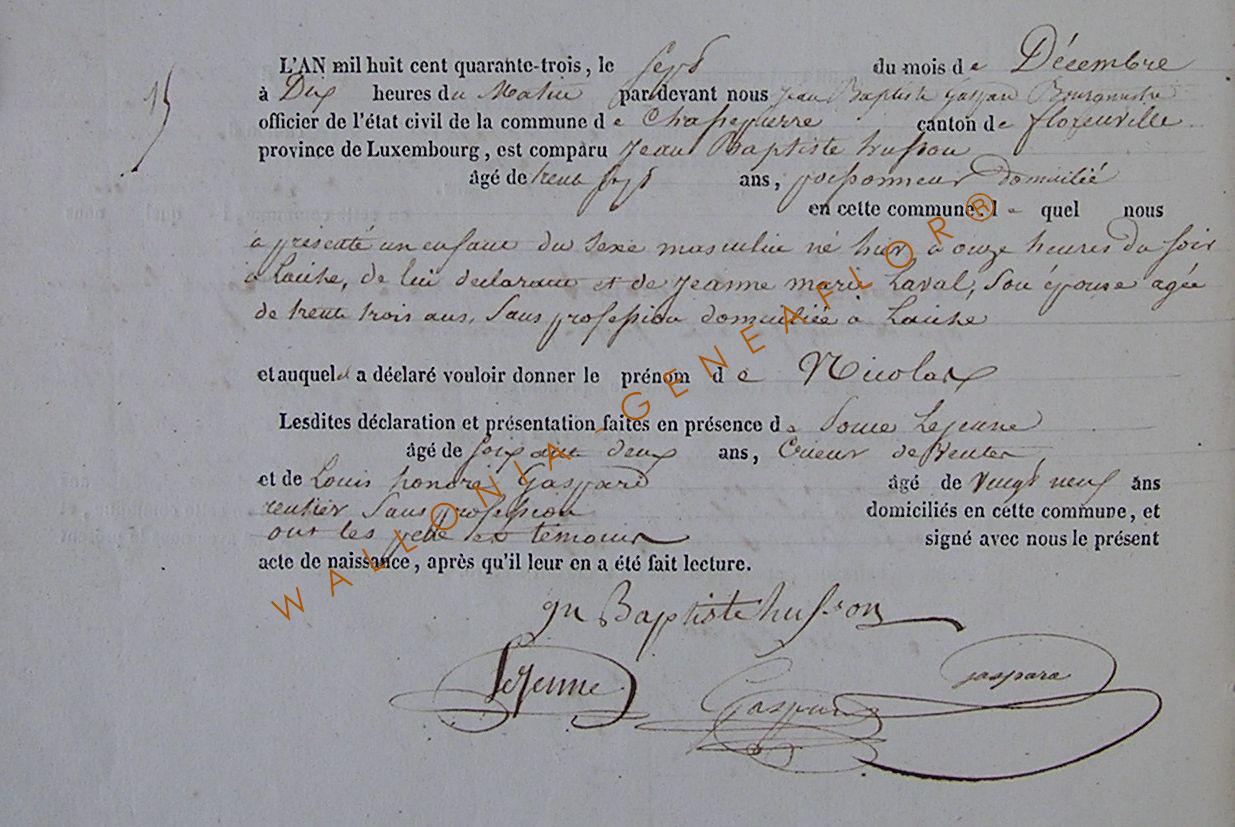 15
L'AN mil huit cent quarante-trois, le sept du mois de Décembre
à Dix heures du Matin par devant nous Jean Baptiste Gaspard Bourgmestre
officier de l'état civil de la commune de Chassepierre canton de florenville
province de Luxembourg, est comparu Jean Baptiste husson
âgé de trente sept ans, domicilié
en cette commune, le quel nous
a présenté un enfant du sexe masculin né hier à onze heures du soir
à Laiche, de lui declarant et de Jeanne marie Laval, Son épouse agée
de trente trois ans, Sans profession domiciliée à Laiche
et auquel a déclaré vouloir donner le prénom de Nicolas
Lesdites déclaration et présentation faites en présence de Lejeune
âgé de soixante deux ans,
et de Louis honoré Gaspard âgé de vingt neuf ans
rentier Sans profession domiciliés en cette commune, et
ont les père et témoins signé avec nous le présent
acte de naissance, après qu'il leur en a été fait lecture.
jn Baptiste husson
LeJeune Gaspard gaspard
WALLONIA-GENEAFLOR®